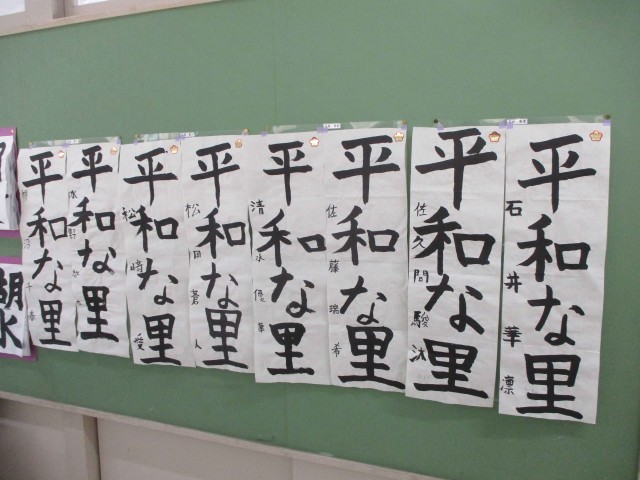 平和な里
石井華凛
平和な里
佐久間駿汰
平和な里
佐藤瑞希
平和な里
清水優華
平和な里
松田蒼人
平和な里
松崎愛
平和な里
平和な里
湖水